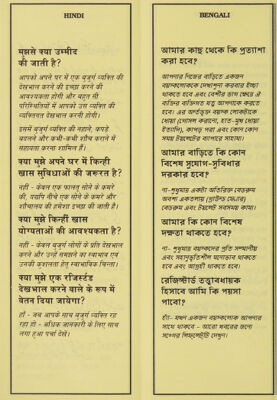 HINDI
मुझसे क्या उम्मीद
की जाती है?
आपको अपने घर में एक बुजुर्ग व्यक्ति की
देखभाल करने की इच्छा करने की
आवश्यकता होगी और बहुत सी
परिस्थितियों में आपको उस व्यक्ति की
व्यक्तिगत देखभाल करनी होगी।
इसमें बुजुर्ग व्यक्ति को नहाने, कपड़े
बदलने और कभी-कभी शौच कराने में
सहायता करना शामिल है।
क्या मुझे अपने घर में किन्हीं
खास सुविधाओं की जरूरत है?
नहीं - केवल एक फालतू सोने के कमरे
की, यद्यपि नीचे एक सोने के कमरे और
शौचालय की हमेशा इच्छा की जाती है।
क्या मुझे किन्हीं खास
योग्यताओं की आवश्यकता है?
नहीं - केवल बुजुर्ग लोगों के प्रति देखभाल
करने और उन्हें समझने का स्वभाव एवं
उनकी कुशलता हेतु स्वाभाविक चिन्ता।
क्या मुझे एक रजिस्टर्ड
देखभाल करने वाले के रूप में
वेतन दिया जायेगा?
हाँ - जब आपके साथ बुजुर्ग व्यक्ति रह
रहा हो - अधिक जानकारी के लिए साथ
लगा हुआ पर्चा देखें।
BENGALI
আমার কাছ থেকে কি প্রত্যাশা
করা হবে?
আপনার নিজের বাড়িতে একজন
বয়স্কলোককে দেখাশুনা করবার ইচ্ছা
থাকতে হবে এবং বেশীর ভাগ ক্ষেত্রে ঐ
ব্যক্তির ব্যক্তিগত যত্ন আপনাকে করতে
হবে। এর অন্তর্ভুক্ত বয়স্ক লোকটাকে
ধোয়া (গোসল করানো, হাত-মুখ ধোয়া
ইত্যাদি), কাপড় পরা এবং কোন কোন
সময় টয়লেটের ব্যাপারে সাহায্য।
আমার বাড়িতে কি কোন
বিশেষ সুযোগ-সুবিধার
দরকার হবে?
না-শুধুমাত্র একটা অতিরিক্ত বেডরুম
অবশ্য একতলায় (গ্রাউন্ড ফ্লোর)
বেডরুম এবং টয়লেট সবসময় কাম্য।
আমার কি কোন বিশেষ
দক্ষতা থাকতে হবে?
না- শুধুমাত্র বয়স্কদের প্রতি সমব্যথীয়
এবং সহানুভূতিশীল মনোভাব থাকতে
হবে এবং আগ্রহী থাকতে হবে।
রেজিস্টার্ড তত্ত্বাবধায়ক
হিসাবে আমি কি পয়সা
পাবো?
হ্যাঁ- যখন একজন বয়স্কলোক আপনার
সাথে থাকবে – আরো খবরের জন্যে
সঙ্গের লিফলেটটি দেখুন।